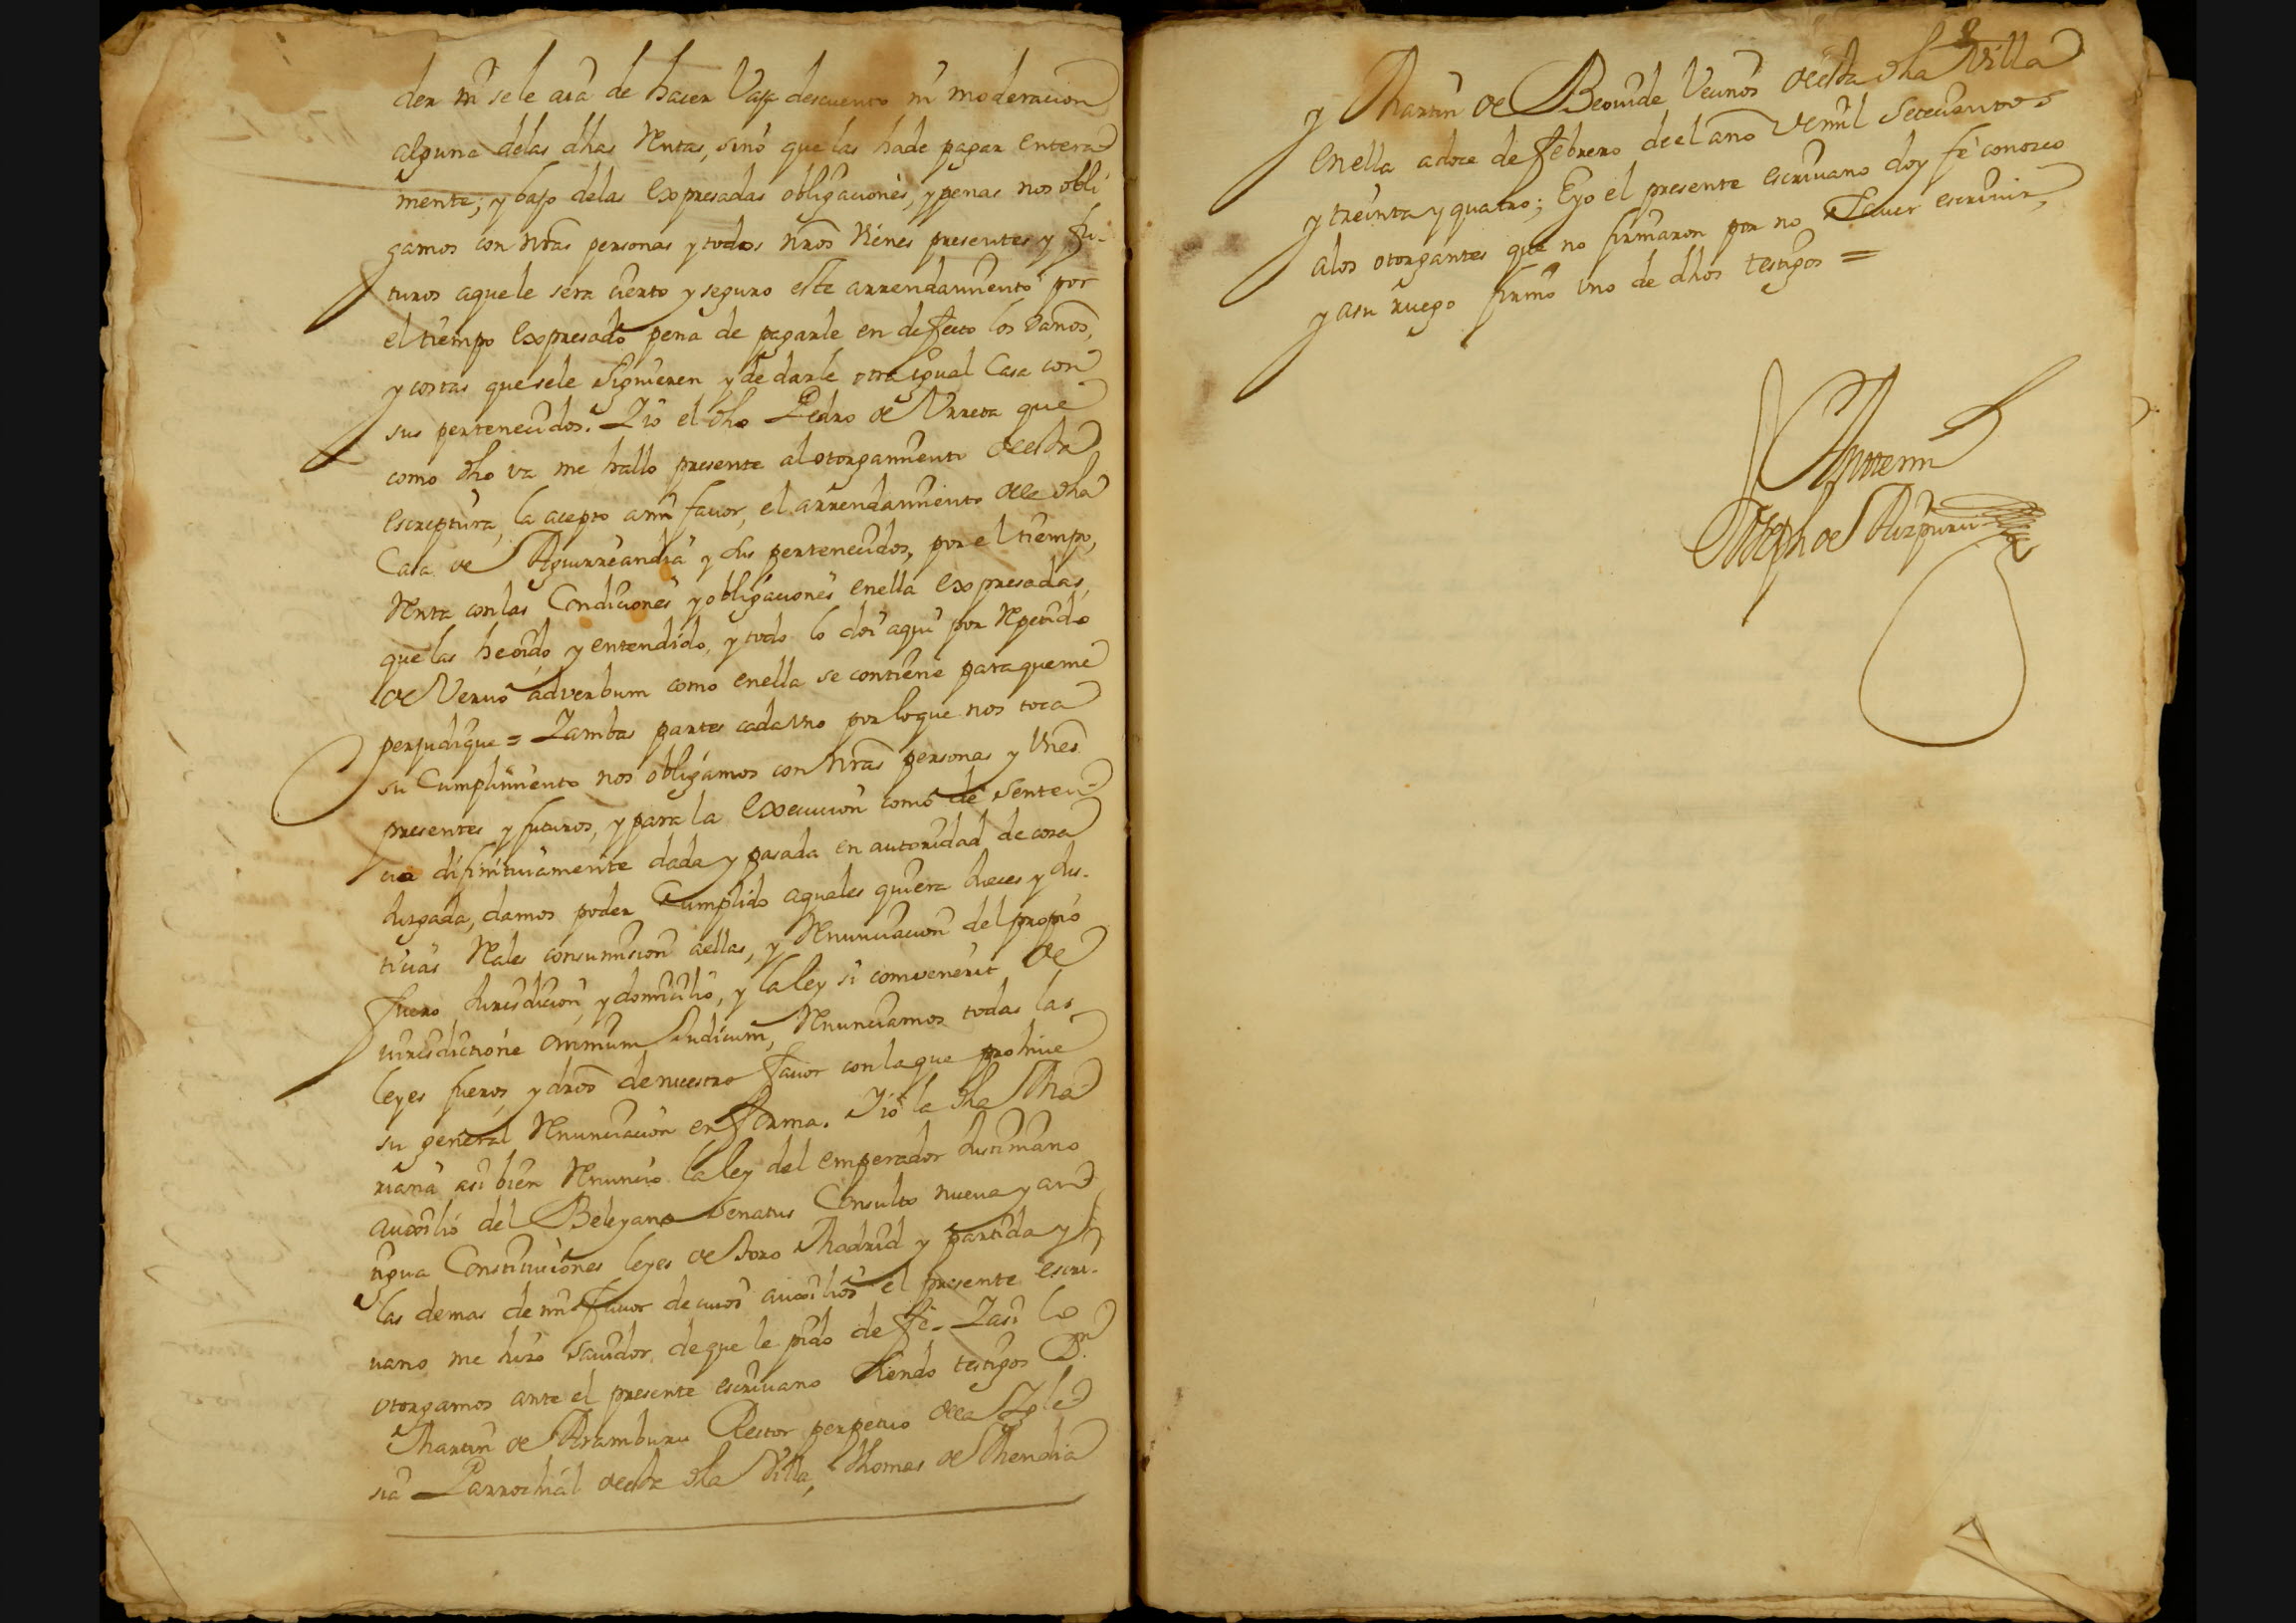 der ni se le ara de hacer Vaja descuento ni moderacion
alguna delas dhas Rentas, sino que las hade pagar entera
mente; y bajo delas expresadas obligaciones, y penas nos obli
gamos con nras personas y todos nros vienes presentes y fu-
turos aquele sera cierto y seguro este arrendamiento por
el tiempo expresado pena de pagarle en defecto los daños,
y costas que sele siguieren y de darle otra igual Casa con
sus pertenecidos. Yio el dho Pedro de Urreta que
como dho va me hallo presente al otorgamiento de esta
escriptura, la acepto ami favor, el arrendamiento de la dha
Casa de Aguirreandia y sus pertenecidos, por el tiempo,
Renta con las Condiciones y obligaciones enella expresadas,
que las heoido y entendido, y todo lo doi aqui por Repetido
de Vervo adverbum como enella se contiene paraqueme
perjudique = Yambas partes cadauno por loque nos toca
su Cumplimiento nos obligamos con nras personas y vnes
presentes y futuros, y para la execucion como de senten
cia difinitivamente dada y pasada en autoridad de cosa
Juzgada, damos poder Cumplido aquales quiera Jueces y Jus-
ticias Reales consumision aellas, y Renunciacion del propio
fuero Jurisdicion, y domicilio, y la ley si convenerit de
iurisdictione omnium Iudicum, Renunciamos todas las
leyes fueros, y dros denuestro favor conlaque prohive
su general Renunciacion en forma. Yio la dha Ma
riana asi bien Renuncio la ley del emperador Justiniano
auxilio del Beleyano senatus Consulto nueva y an
tigua Constituciones leyes de Toro Madrid y partida y
las demas de mi favor decuios auxilios el presente escri-
vano me hizo savidor, deque le pido de fe. Yasi lo
otorgamos ante el presente escrivano siendo testigos Dn.
Martin de Aramburu Rector perpetuo dela Ygle
sia Parrochial deesta dha Villa, Thomas de Mendia
8
y Martin de Beovide Vecinos deesta dha Villa
enella adoce de febrero deel año demil Setecientos
y treinta y quatro; Eyo el presente escrivano doy fe conozco
alos otorgantes que no firmaron por no saver escrivir,
y asu ruego firmo vno de dhos testigos =
Antemi
Joseph de Aizpuru